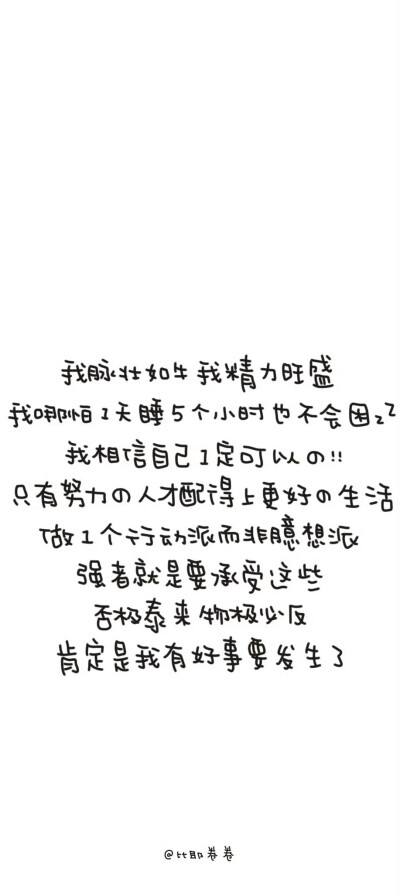 我脉壮如牛 我精力旺盛
我哪怕1天睡5个小时也不会困zz
我相信自己1定可以の!!
只有努力の人才配得上更好の生活
做1个行动派而非臆想派
强者就是要承受这些
否极泰来 物极必反
肯定是我有好事要发生了
@比耶卷卷